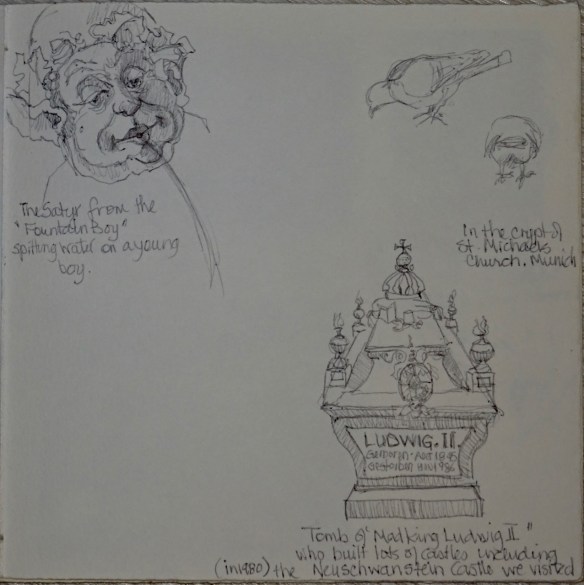 The Satyr from the
"Fountain Boy"
spitting water on a young
boy.
in the crypt of
St. Michaels
Church. Munich
LUDWIG. II.
Geboren
Gestorben
Tomb of "Mad king Ludwig II"
who built lots of castles including
(in 1980) the Neuschwanstein Castle we visited